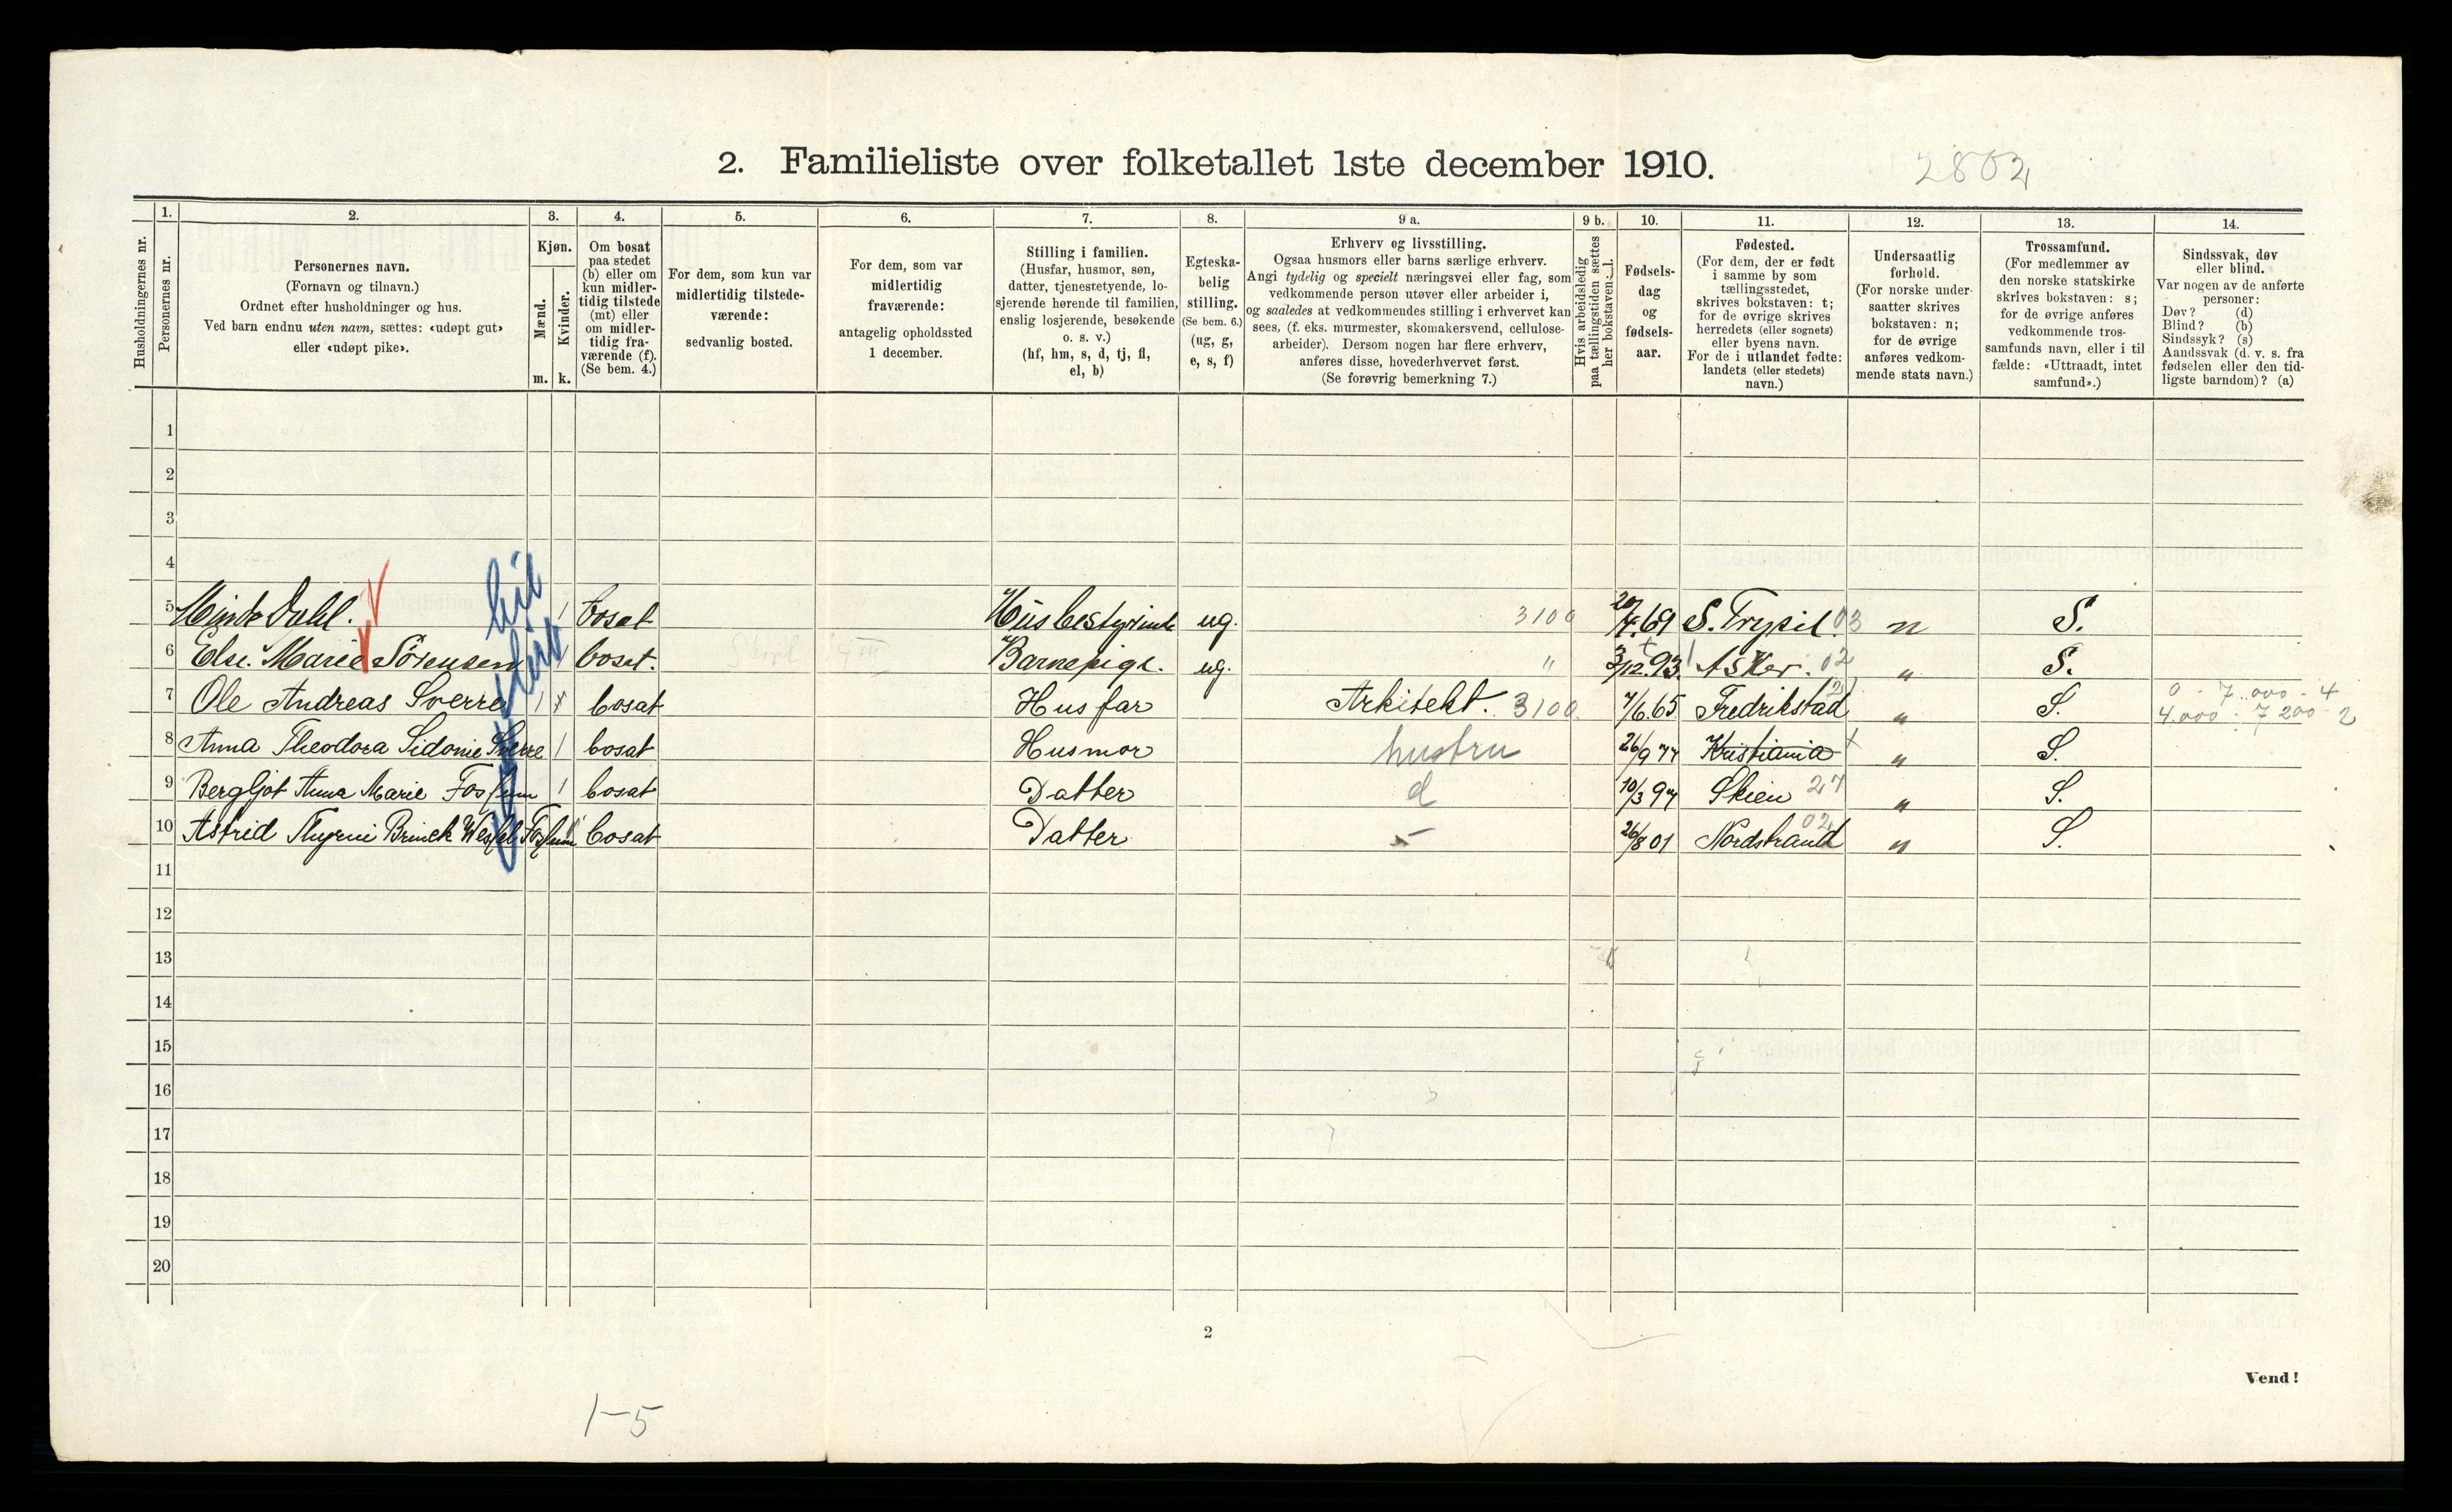 2. Familieliste over folketallet 1ste december 1910.
2802
Husholdningernes nr.
1.
Personernes nr.
2.
Personernes navn.
(Fornavn og tilnavn.)
Ordnet efter husholdninger og hus.
Ved barn endnu uten navn, sættes: «udøpt gut»
eller «udøpt pike».
3.
Kjøn.
Mænd.
Kvinder.
m. k.
4.
Om bosat
paa stedet
(b) eller om
kun midler-
tidig tilstede
(mt) eller
om midler-
tidig fra-
værende (f).
(Se bem. 4.)
5.
For dem, som kun var
midlertidig tilstede-
værende:
sedvanlig bosted.
6.
For dem, som var
midlertidig
fraværende:
antagelig opholdssted
1 december.
7.
Stilling i familien.
(Husfar, husmor, søn,
datter, tjenestetyende, lo-
sjerende hørende til familien,
enslig losjerende, besøkende
o. s. v.)
(hf, hm, s, d, tj, fl,
el, b)
8.
Egteska-
belig
stilling.
(Se bem. 6.)
(ug, g,
e, s, f)
9 a.
Erhverv og livsstilling.
Ogsaa husmors eller barns særlige erhverv.
Angi tydelig og specielt næringsvei eller fag, som
vedkommende person utøver eller arbeider i,
og saaledes at vedkommendes stilling i erhvervet kan
sees, (f. eks. murmester, skomakersvend, cellulose-
arbeider). Dersom nogen har flere erhverv,
anføres disse, hovederhvervet først.
(Se forøvrig bemerkning 7.)
9 b.
Hvis arbeidsledig
paa tællingstiden sættes
her bokstaven: l.
10.
Fødsels-
dag
og
fødsels-
aar.
11.
Fødested.
(For dem, der er født
i samme by som
tællingsstedet,
skrives bokstaven: t;
for de øvrige skrives
herredets (eller sognets)
eller byens navn.
For de i utlandet fødte:
landets (eller stedets)
navn.)
12.
Undersaatlig
forhold.
(For norske under-
saatter skrives
bokstaven: n;
for de øvrige
anføres vedkom-
mende stats navn.)
13.
Trossamfund.
(For medlemmer av
den norske statskirke
skrives bokstaven: s;
for de øvrige anføres
vedkommende tros-
samfunds navn, eller i til-
fælde: «Uttraadt, intet
samfund».)
14.
Sindssvak, døv
eller blind.
Var nogen av de anførte
personer:
Døv? (d)
Blind? (b)
Sindssyk? (s)
Aandssvak (d. v. s. fra
fødselen eller den tid-
ligste barndom)? (a)
1
2
3
4
5 Dahl. 1 bosat ug. 3100 69 S. Trysil. 03 n S.
6 Else Marie Sörensen 1 bosat. Barnepige. ug. " 3/12.93. Asker. 02 " S.
7 Ole Andreas Sverre 1 bosat Husfar Arkitekt. 3100 7/6.65 Fredrikstad " S. 0 - 7.000 - 4
4.000 - 7 200 - 2
8 Anna Theodora Sidonie Sverre 1 bosat Husmor hustru 26/9 77 Kristiania t " S.
9 Bergljot Anna Marie Fossum 1 bosat Datter d 10/3 97 Skien 27 " S.
10 Astrid Brinck Wessel Fossum bosat Datter - 26/8 01 Nordstrand 02 " S.
11
12
13
14
15
16
17
18
19
20
2
Vend!
1-5